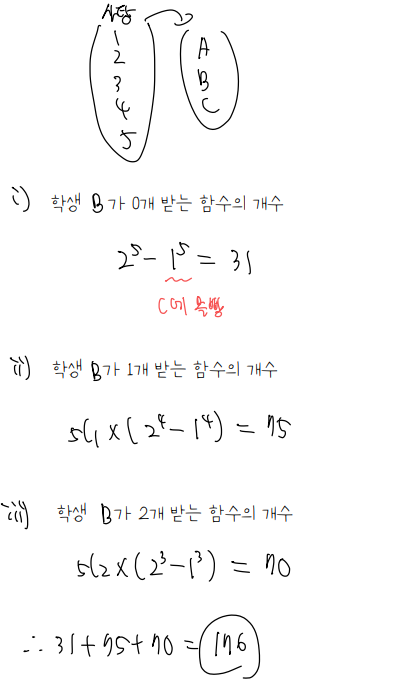 사탕
1
2
3
4
5
A
B
C
i) 학생 B가 0개 받는 함수의 개수
2⁵ - 1⁵ = 31
C에 몰빵
ii) 학생 B가 1개 받는 함수의 개수
5C1 × (2⁴ - 1⁴) = 75
iii) 학생 B가 2개 받는 함수의 개수
5C2 × (2³ - 1³) = 70
∴ 31 + 75 + 70 = 176